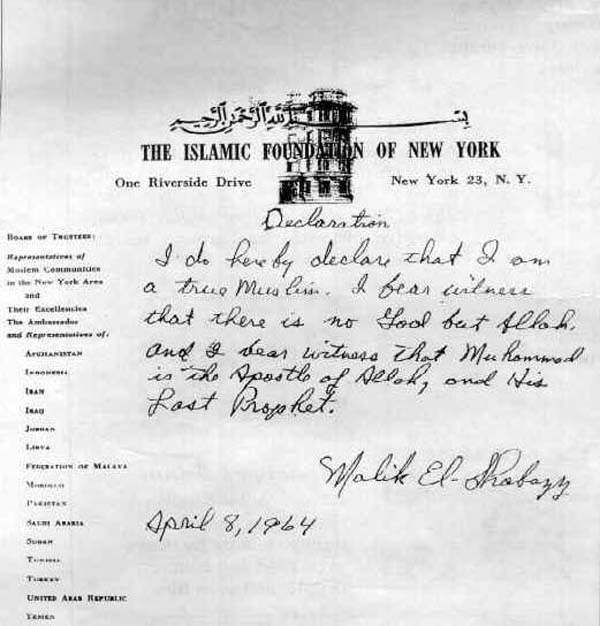 بسم الله الرحمن الرحيم
THE ISLAMIC FOUNDATION OF NEW YORK
One Riverside Drive
New York 23, N. Y.
Declaration
I do hereby declare that I am
a true Muslim. I bear witness
that there is no God but Allah,
and I bear witness that Muhammad
is the Apostle of Allah, and His
Last Prophet.
Malik El-Shabazz
April 8, 1964
BOARD OF TRUSTEES:
Representatives of
Moslem Communities
in the New York Area
and
Their Excellencies
The Ambassador
and Representatives of:
AFGHANISTAN
INDONESIA
IRAN
IRAQ
JORDAN
LIBYA
FEDERATION OF MALAYA
MOROCCO
PAKISTAN
SAUDI ARABIA
SUDAN
TUNISIA
TURKEY
UNITED ARAB REPUBLIC
YEMEN